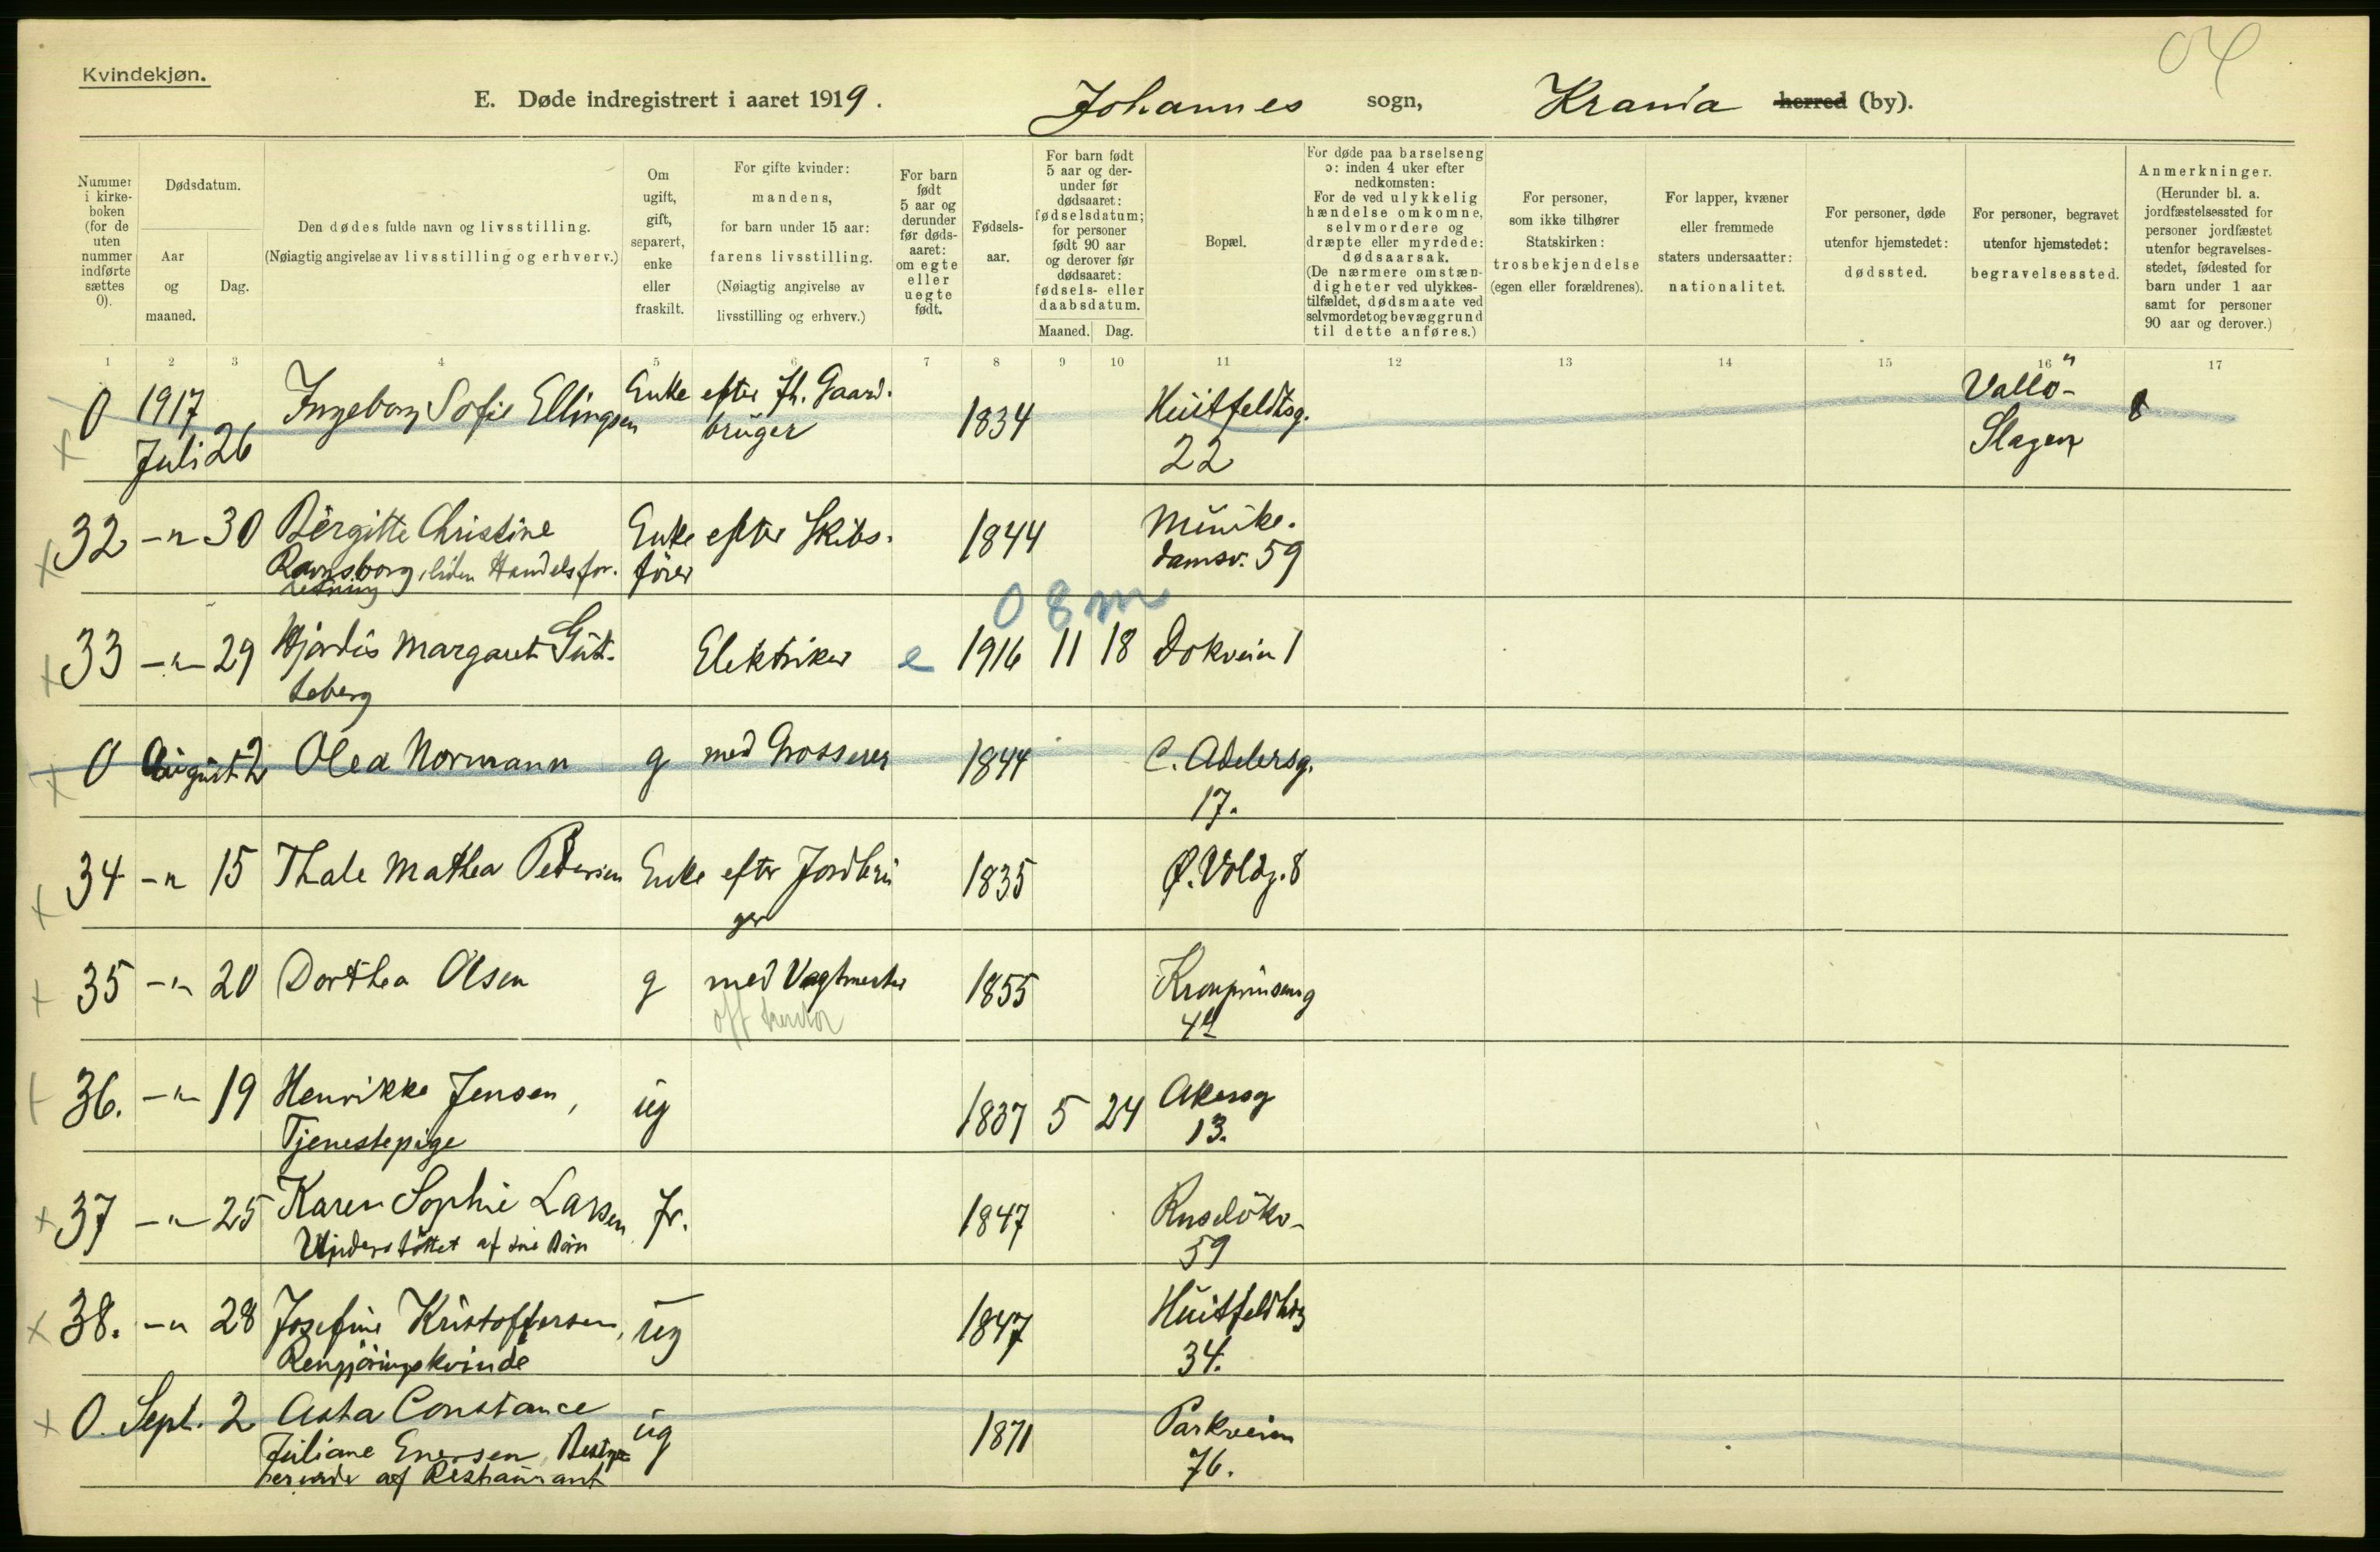 04
Kvindekjøn.
E. Døde indregistrert i aaret 1919. Johannes sogn, Krania herred (by).
Nummer i kirke-boken (for de uten nummer indførte sættes 0).
Dødsdatum.
Aar og maaned.
Dag.
Den dødes fulde navn og livsstilling.
(Nøiagtig angivelse av livsstilling og erhverv.)
Om ugift, gift, separert, enke eller fraskilt.
For gifte kvinder: mandens, for barn under 15 aar: farens livsstilling. (Nøiagtig angivelse av livsstilling og erhverv.)
For barn født 5 aar og derunder før døds-aaret: om egte eller uegte født.
Fødsels-aar.
For barn født 5 aar og der-under før dødsaaret: fødselsdatum; for personer født 90 aar og derover før dødsaaret: fødsels- eller daabsdatum.
Maaned. Dag.
Bopæl.
For døde paa barselseng ɔ: inden 4 uker efter nedkomsten: For de ved ulykkelig hændelse omkomne, selvmordere og dræpte eller myrdede: dødsaarsak. (De nærmere omstæn-digheter ved ulykkes-tilfældet, dødsmaate ved selvmordet og bevæggrund til dette anføres.)
For personer, som ikke tilhører Statskirken: trosbekjendelse (egen eller forældrenes).
For lapper, kvæner eller fremmede staters undersaatter: nationalitet.
For personer, døde utenfor hjemstedet: dødssted.
For personer, begravet utenfor hjemstedet: begravelsessted.
Anmerkninger. (Herunder bl. a. jordfæstelsessted for personer jordfæstet utenfor begravelses-stedet, fødested for barn under 1 aar samt for personer 90 aar og derover.)
1 2 3 4 5 6 7 8 9 10 11 12 13 14 15 16 17
0 1917 Juli 26 Ingeborg Sofie Ellingsen Enke efter fh. Gaard-brüger 1834 Hüitfeldtsg. 22 Vallö-Slagen
32 -"- 30 Bergitte Christine Ravnsborg, liden Handelsfor-retning Enke efter Skibs-förer 1844 Münke-damsv. 59
0 8 m
33 -"- 29 Hjördis Margaret Güt-teberg Elektriker e 1916 11 18 Dokveien 1
0 August 2 Olea Normann g med Grosserer 1844 C. Adelersg. 17.
34 -"- 15 Thale Mathea Pedersen Enke efter Jordbrü ger 1835 Ø. Voldg. 8
35 -"- 20 Dorthea Olsen g med Vagtmester 1855 Kronprinseng
36. -"- 19 Henrikke Jensen, Tjenestepige üg 1837 5 24 Akersg 13.
37 -"- 25 Karen Sophie Larsen Understöttet af sine Börn fr. 1847 Ruselökv- 59
38. -"- 28 Josefine Kristoffersen, Rengjöringskvinde üg 1847 Hüitfeldtsg 34.
0. Sept. 2 Asta Constance Juliane Enersen, Bestyrerinde af Restaurant üg 1871 Parkveien 76.